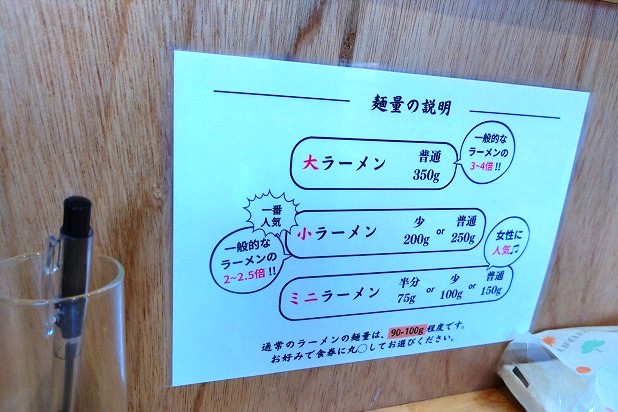 麺量の説明
大ラーメン 普通 350g
一般的な
ラーメンの
3~4倍!!
一番
人気
小ラーメン 少 200g or 普通 250g
一般的な
ラーメンの
2~2.5倍!!
女性に
人気♫
ミニラーメン 半分 75g or 少 100g or 普通 150g
通常のラーメンの麺量は、90-100g程度です。
お好みで食券に丸〇してお選びください。